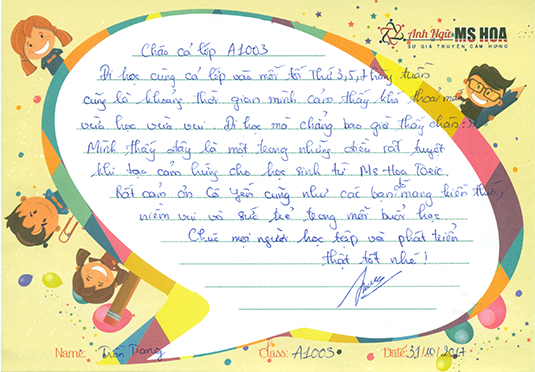 Anh Ngữ MS HOA
SỨ GIẢ TRUYỀN CẢM HỨNG
Chào cả lớp A1003
Đi học cùng cả lớp vào mỗi tối Thứ 3, 5, 7 hàng tuần
cũng là khoảng thời gian mình cảm thấy khá thoải mái
vừa học vừa vui. Đi học mà chẳng bao giờ thấy chán :)
Mình thấy đây là một trong những điều rất tuyệt
khi tạo cảm hứng cho học sinh từ Ms Hoa Toeic.
Rất cảm ơn Cô Yến cũng như các bạn đã mang kiến thức,
niềm vui và sức trẻ trong mỗi buổi học
Chúc mọi người học tập và phát triển
thật tốt nhé!
Trang
Name: Trần Trang Class: A1003 Date: 31/10/2017